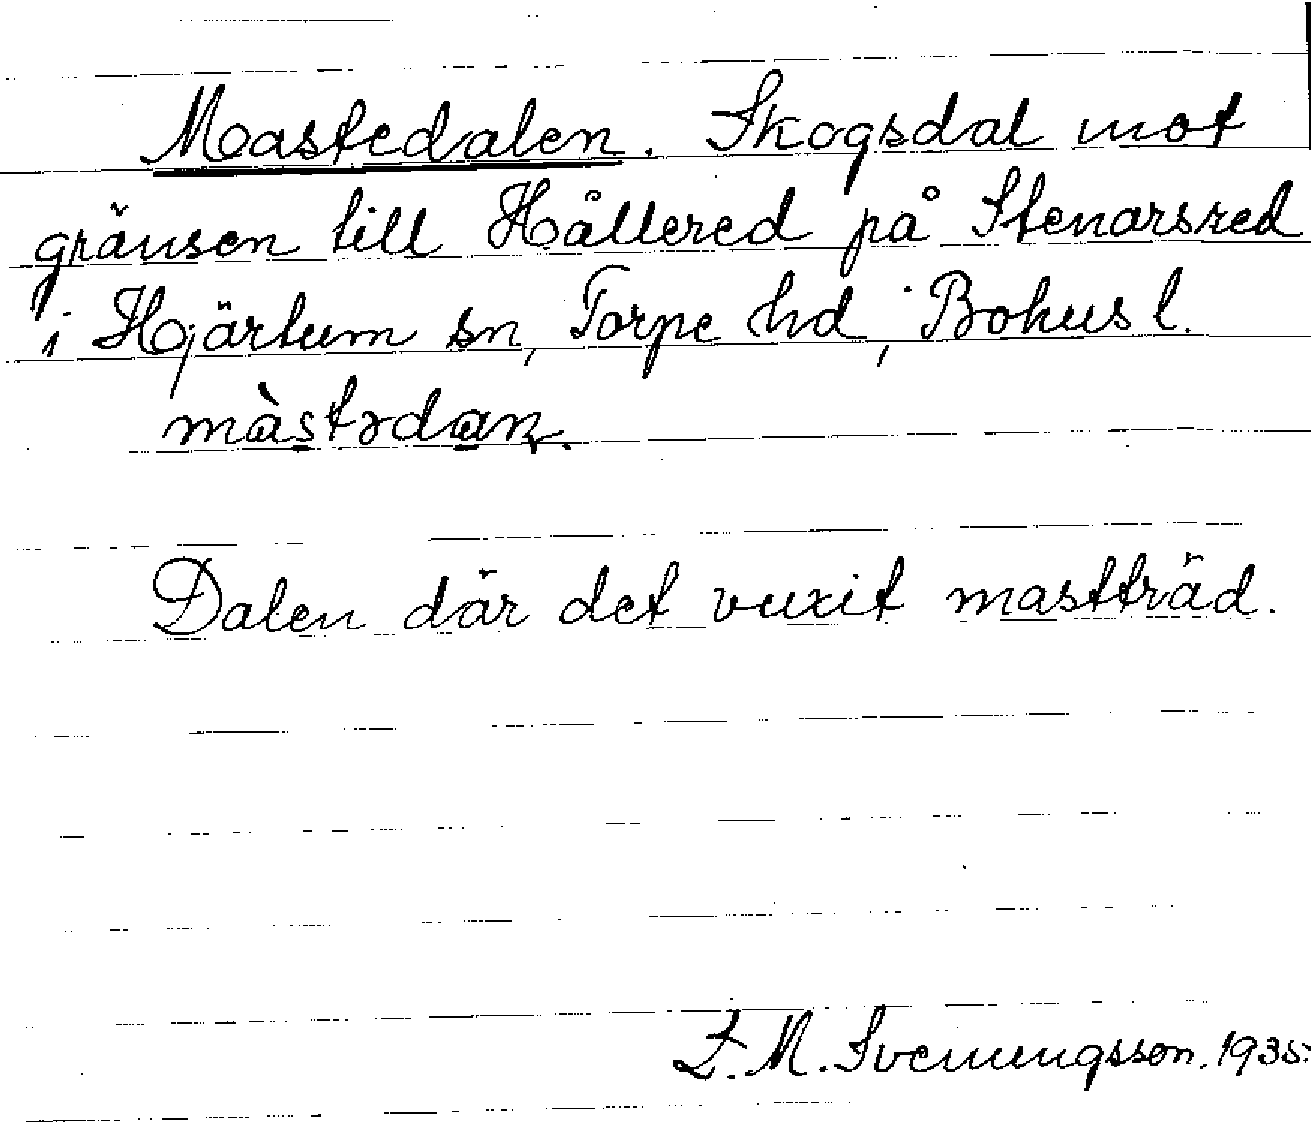 Mastedalen. Skogsdal mot
gränsen till Hållered på Stenarsred
i Hjärtum sn, Torpe hd, Bohusl.
màstədan.
Dalen där det vuxit mastträd.
M. Svenungsson. 1935.